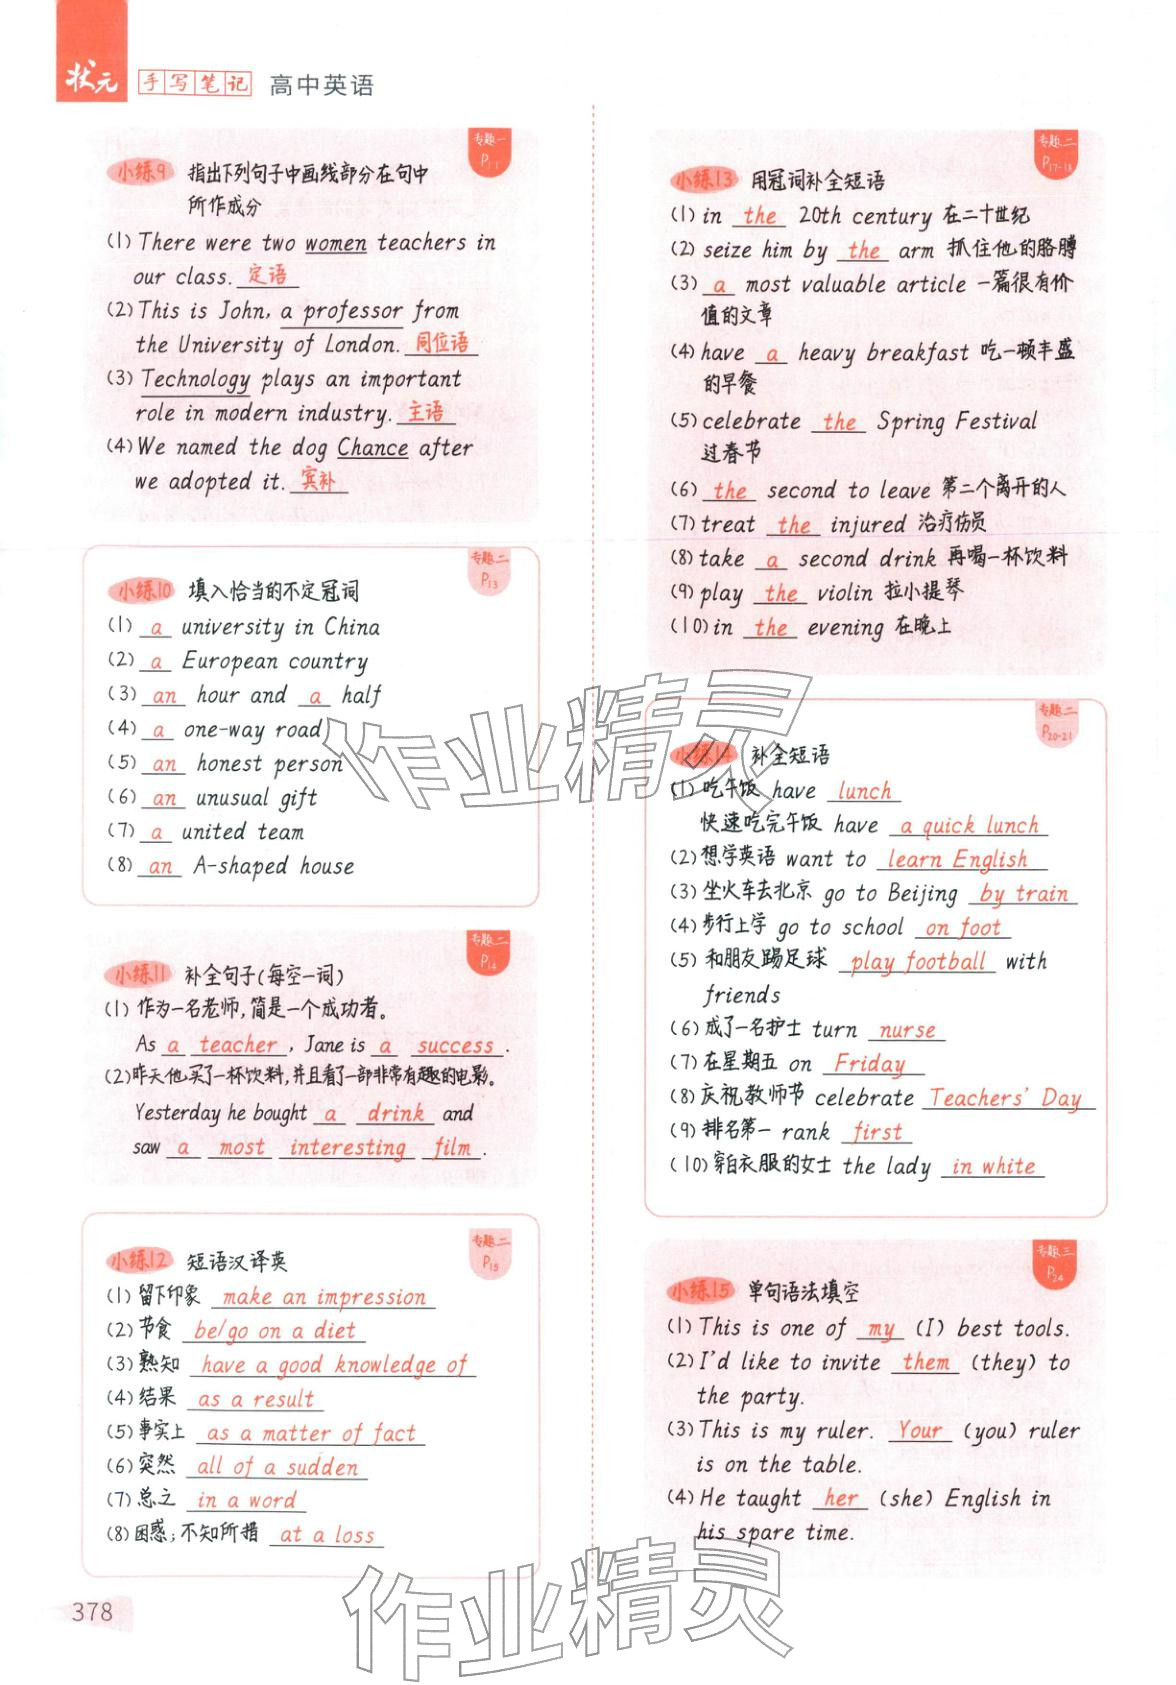 状元 手写笔记 高中英语
专题一
P11
小练9 指出下列句子中画线部分在句中
所作成分
(1) There were two women teachers in
our class. 定语
(2) This is John, a professor from
the University of London. 同位语
(3) Technology plays an important
role in modern industry. 主语
(4) We named the dog Chance after
we adopted it. 宾补
专题二
P13
小练10 填入恰当的不定冠词
(1) a university in China
(2) a European country
(3) an hour and a half
(4) a one-way road
(5) an honest person
(6) an unusual gift
(7) a united team
(8) an A-shaped house
专题二
P14
小练11 补全句子(每空一词)
(1) 作为一名老师,简是一个成功者。
As a teacher, Jane is a success.
(2)昨天他买了一杯饮料,并且看了一部非常有趣的电影。
Yesterday he bought a drink and
saw a most interesting film.
专题二
P15
小练12 短语汉译英
(1) 留下印象 make an impression
(2) 节食 be/go on a diet
(3) 熟知 have a good knowledge of
(4) 结果 as a result
(5) 事实上 as a matter of fact
(6) 突然 all of a sudden
(7) 总之 in a word
(8) 困惑;不知所措 at a loss
378
专题二
P17-18
小练13 用冠词补全短语
(1) in the 20th century 在二十世纪
(2) seize him by the arm 抓住他的胳膊
(3) a most valuable article 一篇很有价
值的文章
(4) have a heavy breakfast 吃一顿丰盛
的早餐
(5) celebrate the Spring Festival
过春节
(6) the second to leave 第二个离开的人
(7) treat the injured 治疗伤员
(8) take a second drink 再喝一杯饮料
(9) play the violin 拉小提琴
(10) in the evening 在晚上
专题二
P20-21
小练14 补全短语
(1) 吃午饭 have lunch
快速吃完午饭 have a quick lunch
(2) 想学英语 want to learn English
(3) 坐火车去北京 go to Beijing by train
(4) 步行上学 go to school on foot
(5) 和朋友踢足球 play football with
friends
(6) 成了一名护士 turn nurse
(7) 在星期五 on Friday
(8) 庆祝教师节 celebrate Teachers' Day
(9) 排名第一 rank first
(10) 穿白衣服的女士 the lady in white
专题三
P24
小练15 单句语法填空
(1) This is one of my (I) best tools.
(2) I'd like to invite them (they) to
the party.
(3) This is my ruler. Your (you) ruler
is on the table.
(4) He taught her (she) English in
his spare time.
作业精灵
作业精灵